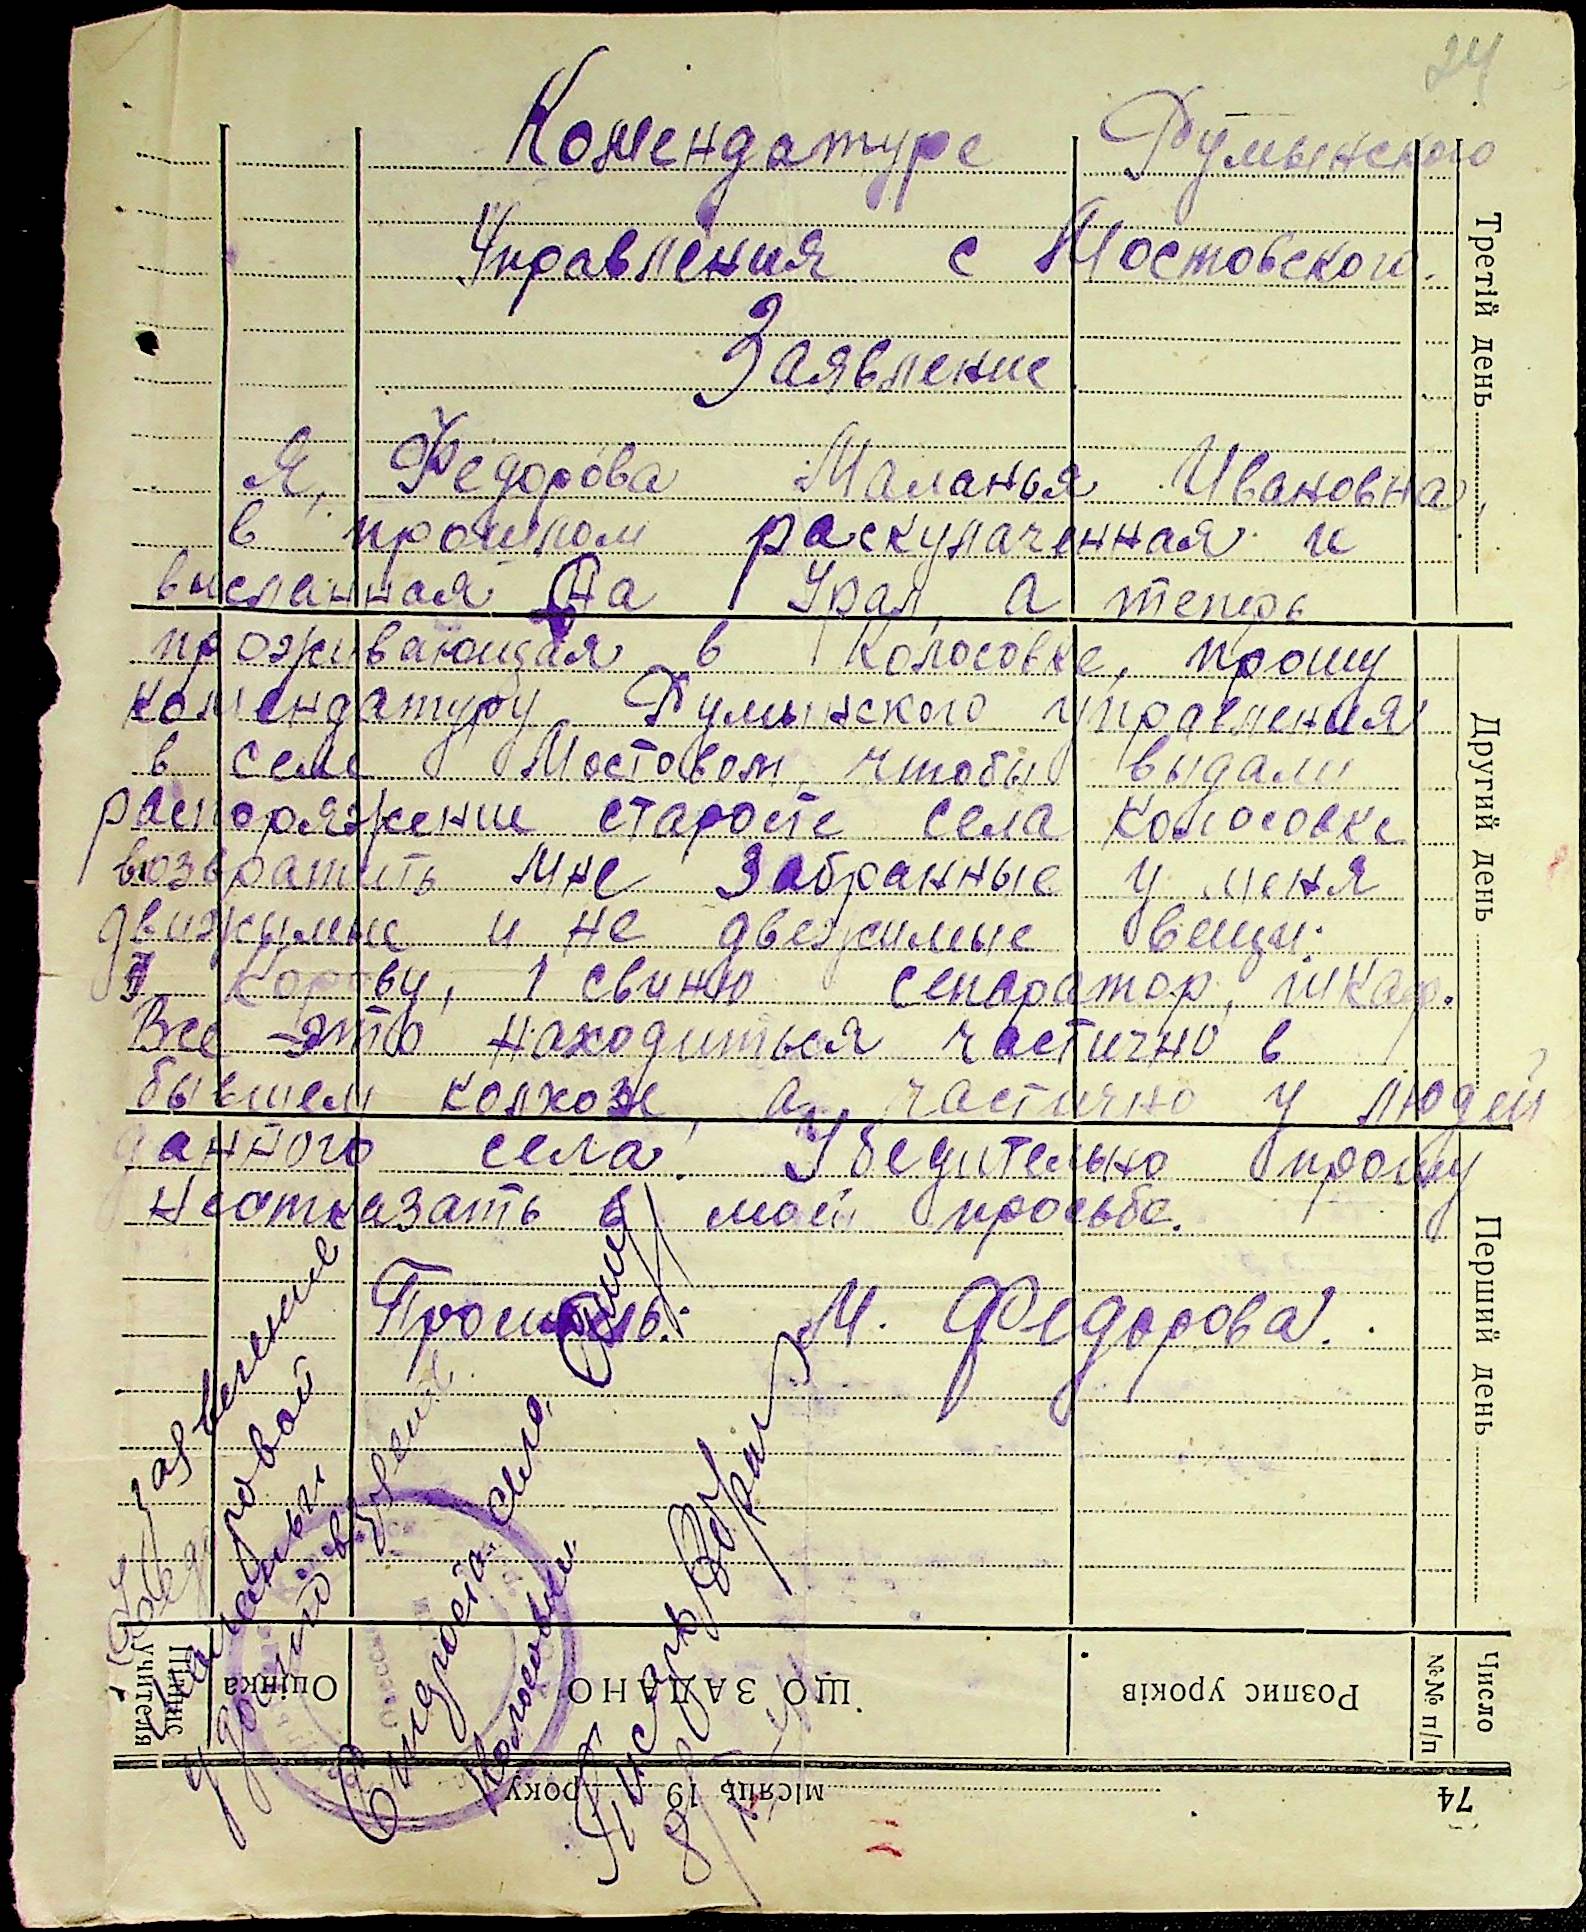 24
Комендатуре Румынского
Управления с Мостовского.
Заявление
Я, Федорова Маланья Ивановна,
в прошлом раскулаченная и
висланная на Урал, а теперь
проживающая в Колосовке, прошу
комендатуру Румынского управления
в селе Мостовом, чтобы выдали
распоряжение старосте села Колосовке
возвратить мне забранные у меня
движымые и не двежимые вещи:
1 Корову, 1 свинью сепаратор, шкаф.
Все это находиться частично в
бывшем колхозе, а частично у людей
данного села. Убедительно прошу
неотказать в моей просьбе.
Проситель: М. Федорова.
заявление
удостоверен
Староста села
Колосовки
Писарь
Третій день
Другий день
Перший день
Число
№№ п/п
Розпис уроків
ЩО ЗАДАНО
Оцінка
Підпис учителя
місяць 19 року
74